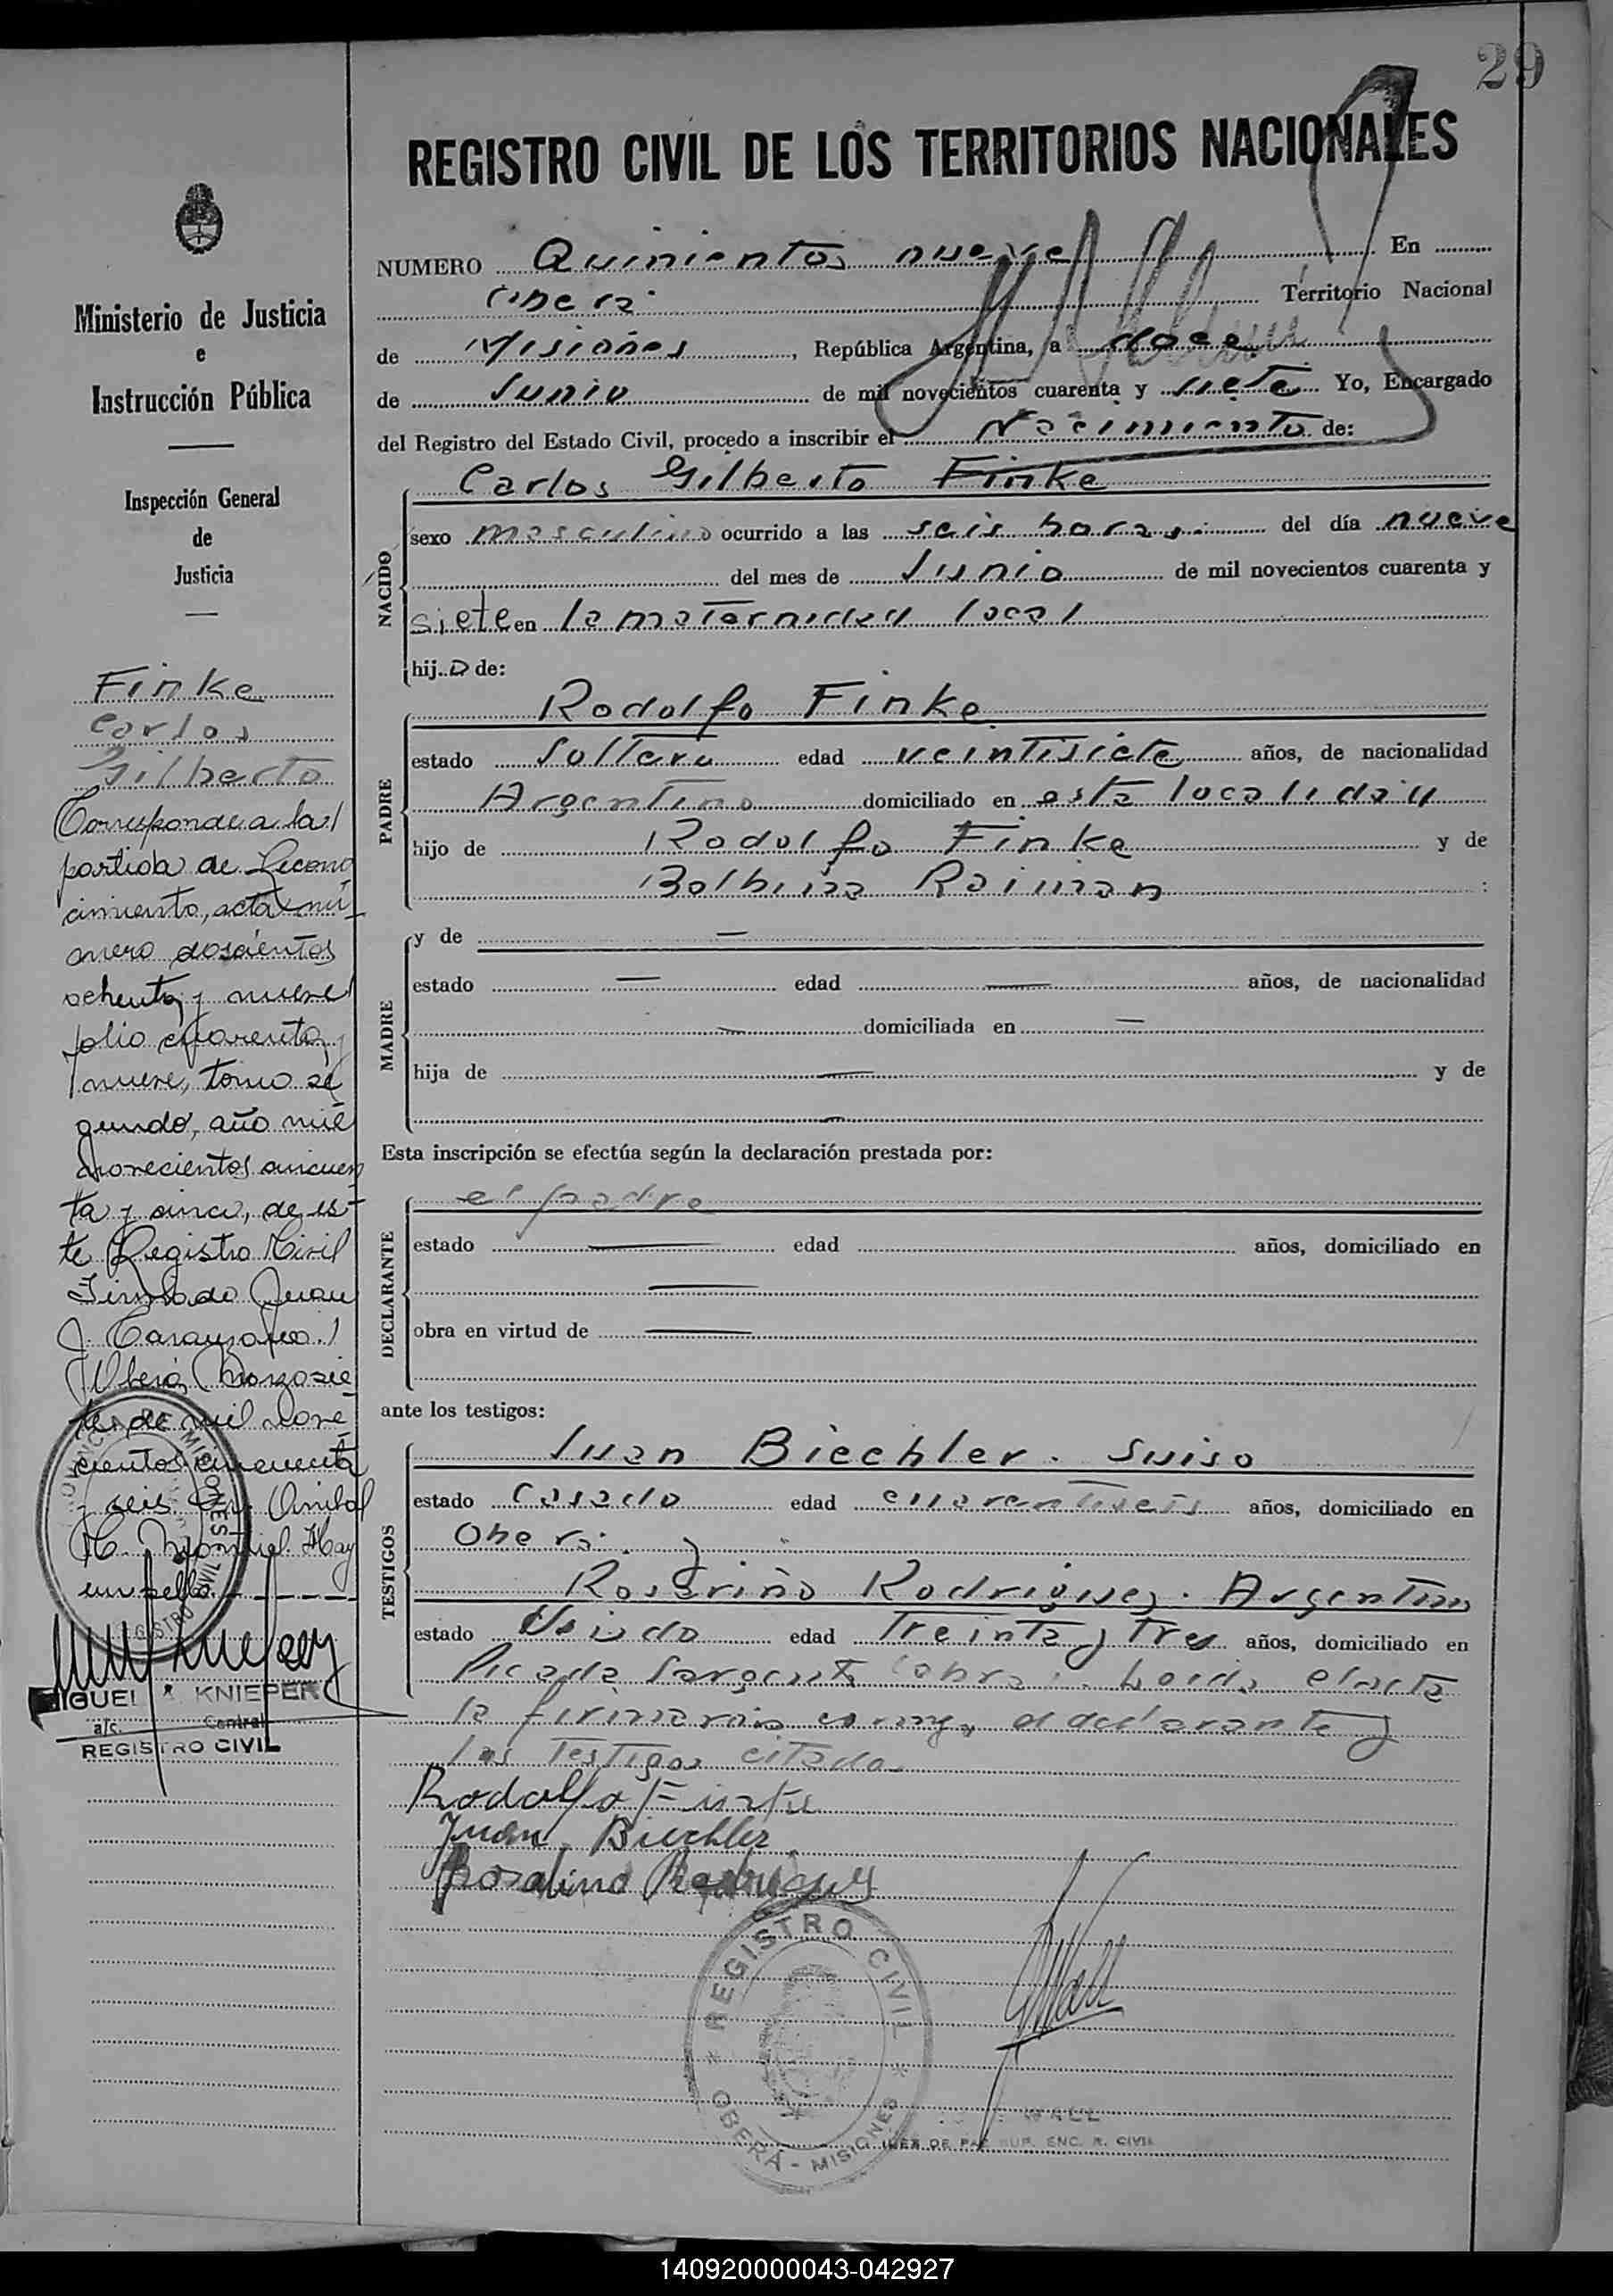 29
REGISTRO CIVIL DE LOS TERRITORIOS NACIONALES
NUMERO Quinientos nueve En
Oberá Territorio Nacional
de Misiones, República Argentina, a doce
de Junio de mil novecientos cuarenta y siete Yo, Encargado
del Registro del Estado Civil, procedo a inscribir el Nacimiento de:
NACIDO
Carlos Gilberto Finke
sexo masculino ocurrido a las seis horas. del día nueve
del mes de Junio de mil novecientos cuarenta y
siete en la maternidad local
hijo de:
PADRE
Rodolfo Finke
estado soltero edad veintisiete años, de nacionalidad
Argentino domiciliado en esta localidad
hijo de Rodolfo Finke y de
Balbina Raiman :
MADRE
y de —
estado — edad — años, de nacionalidad
— domiciliada en —
hija de — y de
—
Esta inscripción se efectúa según la declaración prestada por:
DECLARANTE
el padre
estado — edad años, domiciliado en
—
obra en virtud de —
ante los testigos:
TESTIGOS
Juan Biechler. Suiso
estado Casado edad cuarentiseis años, domiciliado en
Oberá. y
Rodriguez. Argentino
estado Viudo edad treinta y tres años, domiciliado en
Picada Sargento Cabral. Leida el acta
la firmaron conmigo el declarante y
los testigos citados
Rodolfo Finke
Juan Biechler
Rosalino Rodriguez
REGISTRO CIVIL
OBERÁ - MISIONES
WALL
JUEZ DE PAZ SUP. ENC. R. CIVIL
Ministerio de Justicia
e
Instrucción Pública
Inspección General
de
Justicia
Finke
Carlos
Gilberto
Corresponde a la
partida de Recono
cimiento, acta nú-
mero doscientos
ochenta y nueve
folio cuarenta y
nueve, tomo se
gundo, año mil
novecientos cincuen
ta y cinco, de es-
te Registro Civil
Firmado Juan
J.
Oberá, Marzo sie-
te de mil nove
cientos cincuenta
y seis. Anibal
H. Montiel. Hay
un sello.
MIGUEL A. KNIEPER
a/c. Central
REGISTRO CIVIL
140920000043-042927